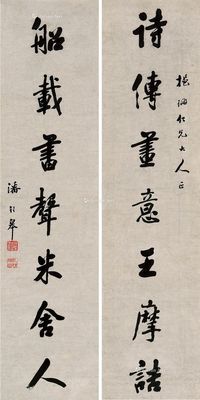 詩傳畫意王摩詰
仁兄大人正
船載書聲米舍人
潘